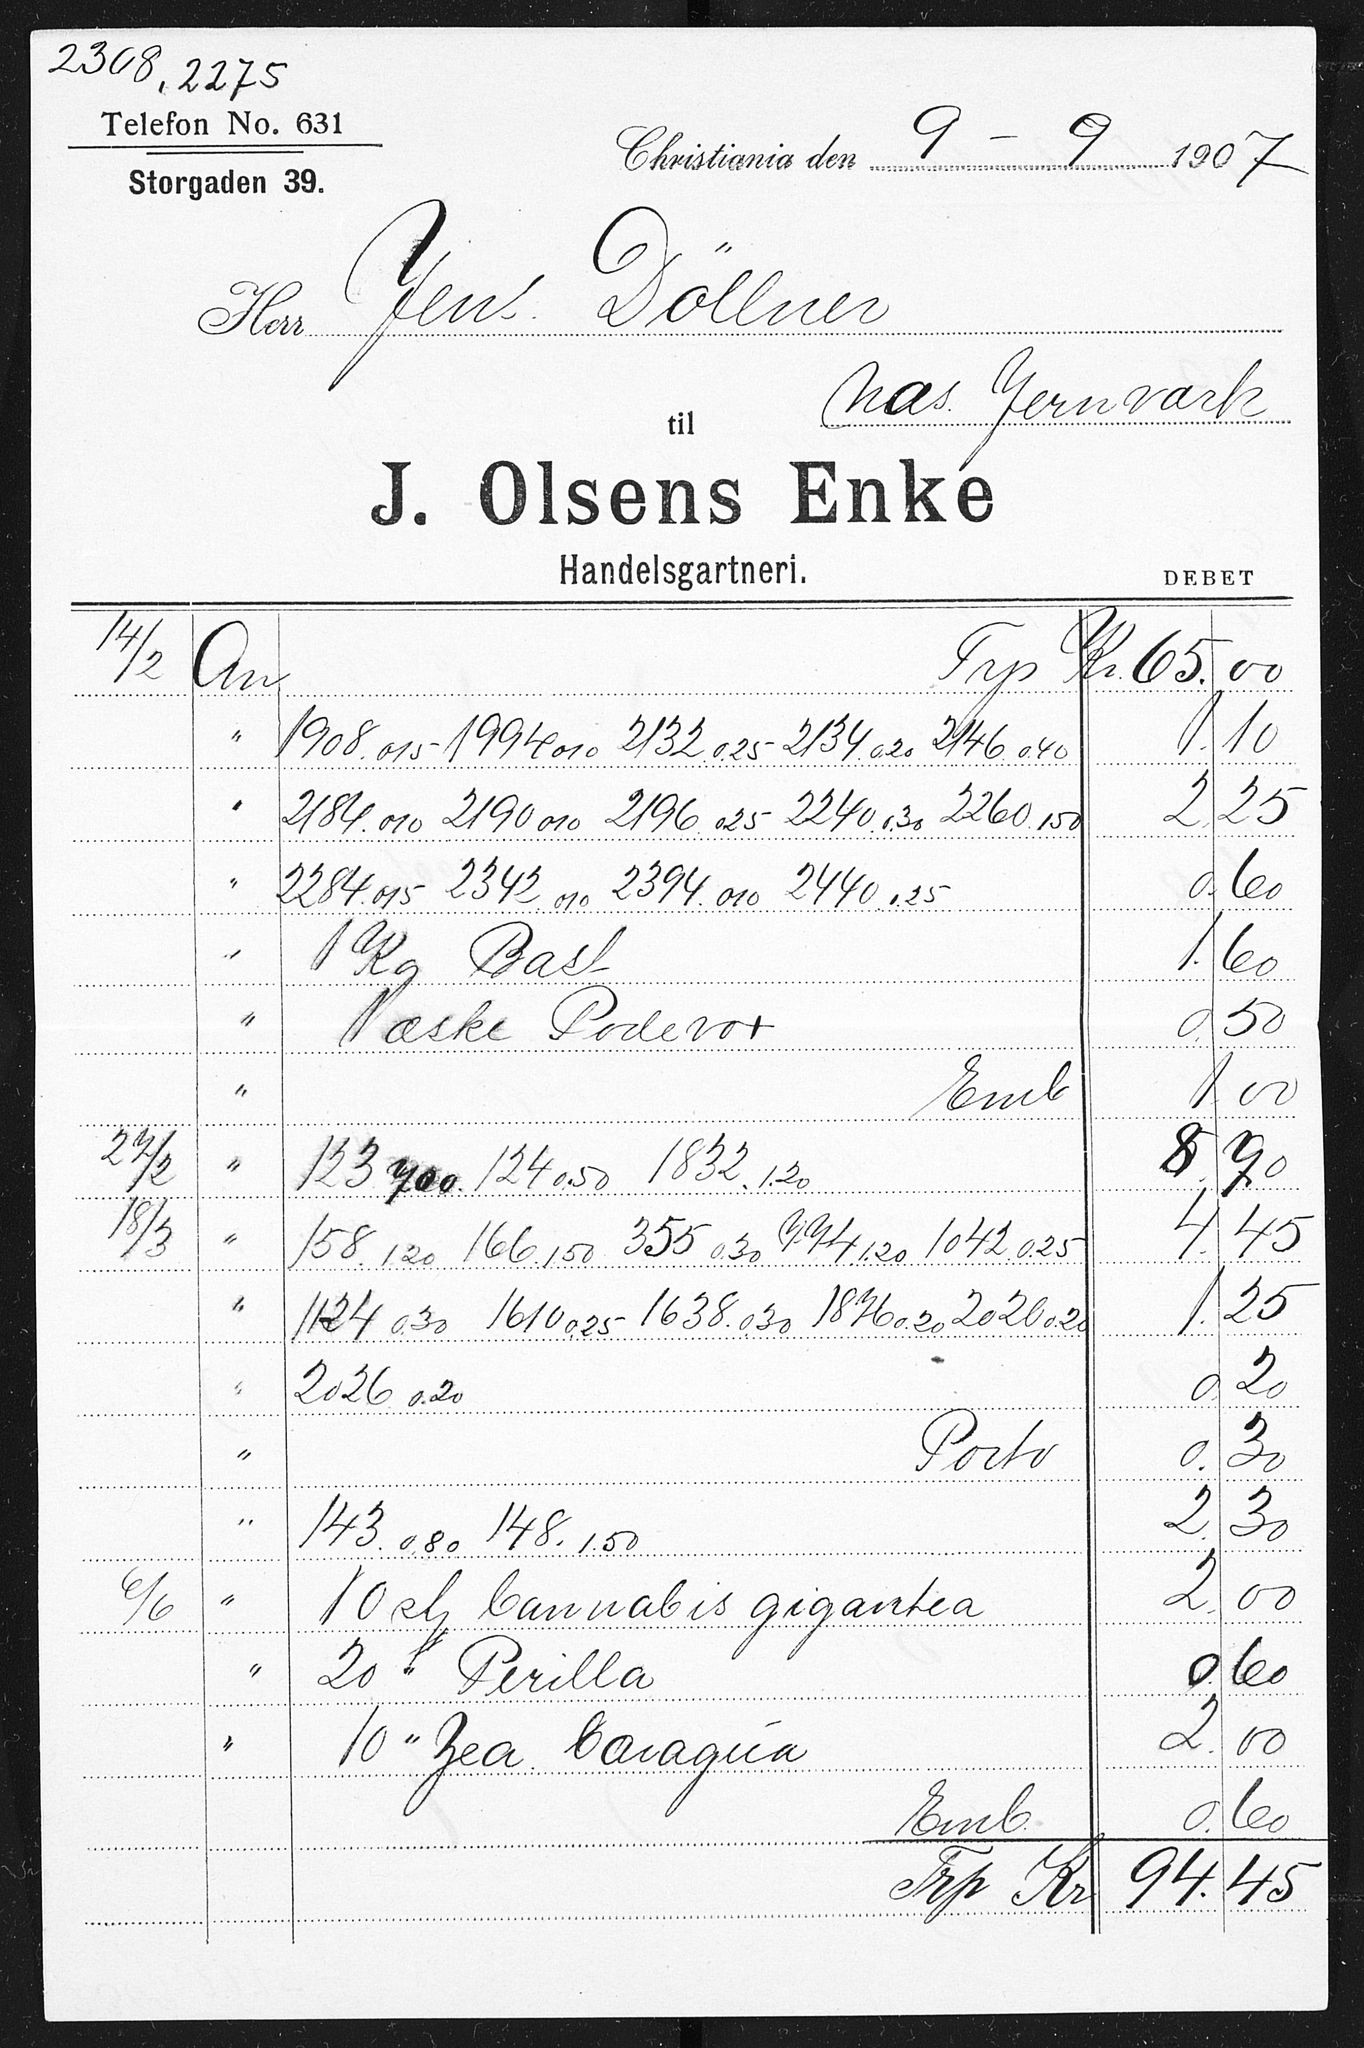 2308, 2275
Telefon No. 631
Storgaden 39.
Christiania den 9 - 9 1907
Herr Jens. Döllner
Næs. Jernværk
til
J. Olsens Enke
Handelsgartneri.
DEBET
14/2 An Trp Kr. 65.00
" 1908.015 1994.010 2132.0.25 2134.0.20 2146.0.40 1.10
" 2184.010 2190.010 2196.025 2240.0.30 2260.150 2.25
" 2284.015 2342.010 2394.010 2440.0.25 0.60
" 1 Kg Bast 1.60
" 1 æske Podevox 0.50
" Emb 1.00
27/2 " 123 700. 124 0.50 1832.1.20 8.70
18/3 " 158.120 166.150 355 0.30 774 1.20 1042 0.25 4.45
" 1124 0.30 1610 0.25 1638.030 1876 0.20 2020 0.20 1.25
" 2026 0.20 0.20
" Porto 0.30
" 143.0.80 148.1.50 2.30
6/6 " 10 stk Cannabis gigantea 2.00
" 20 " Perilla 0.60
" 10 " Zea. Caragua 2.00
Emb. 0.60
Trp Kr 94.45